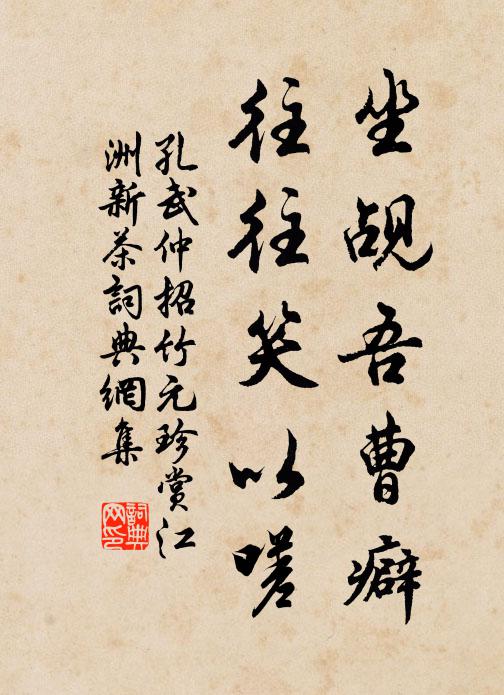 坐觇吾曹癖
往往笑以嗟
孔武仲招竹元珍赏江
洲新茶詞典網集
詞典
网印